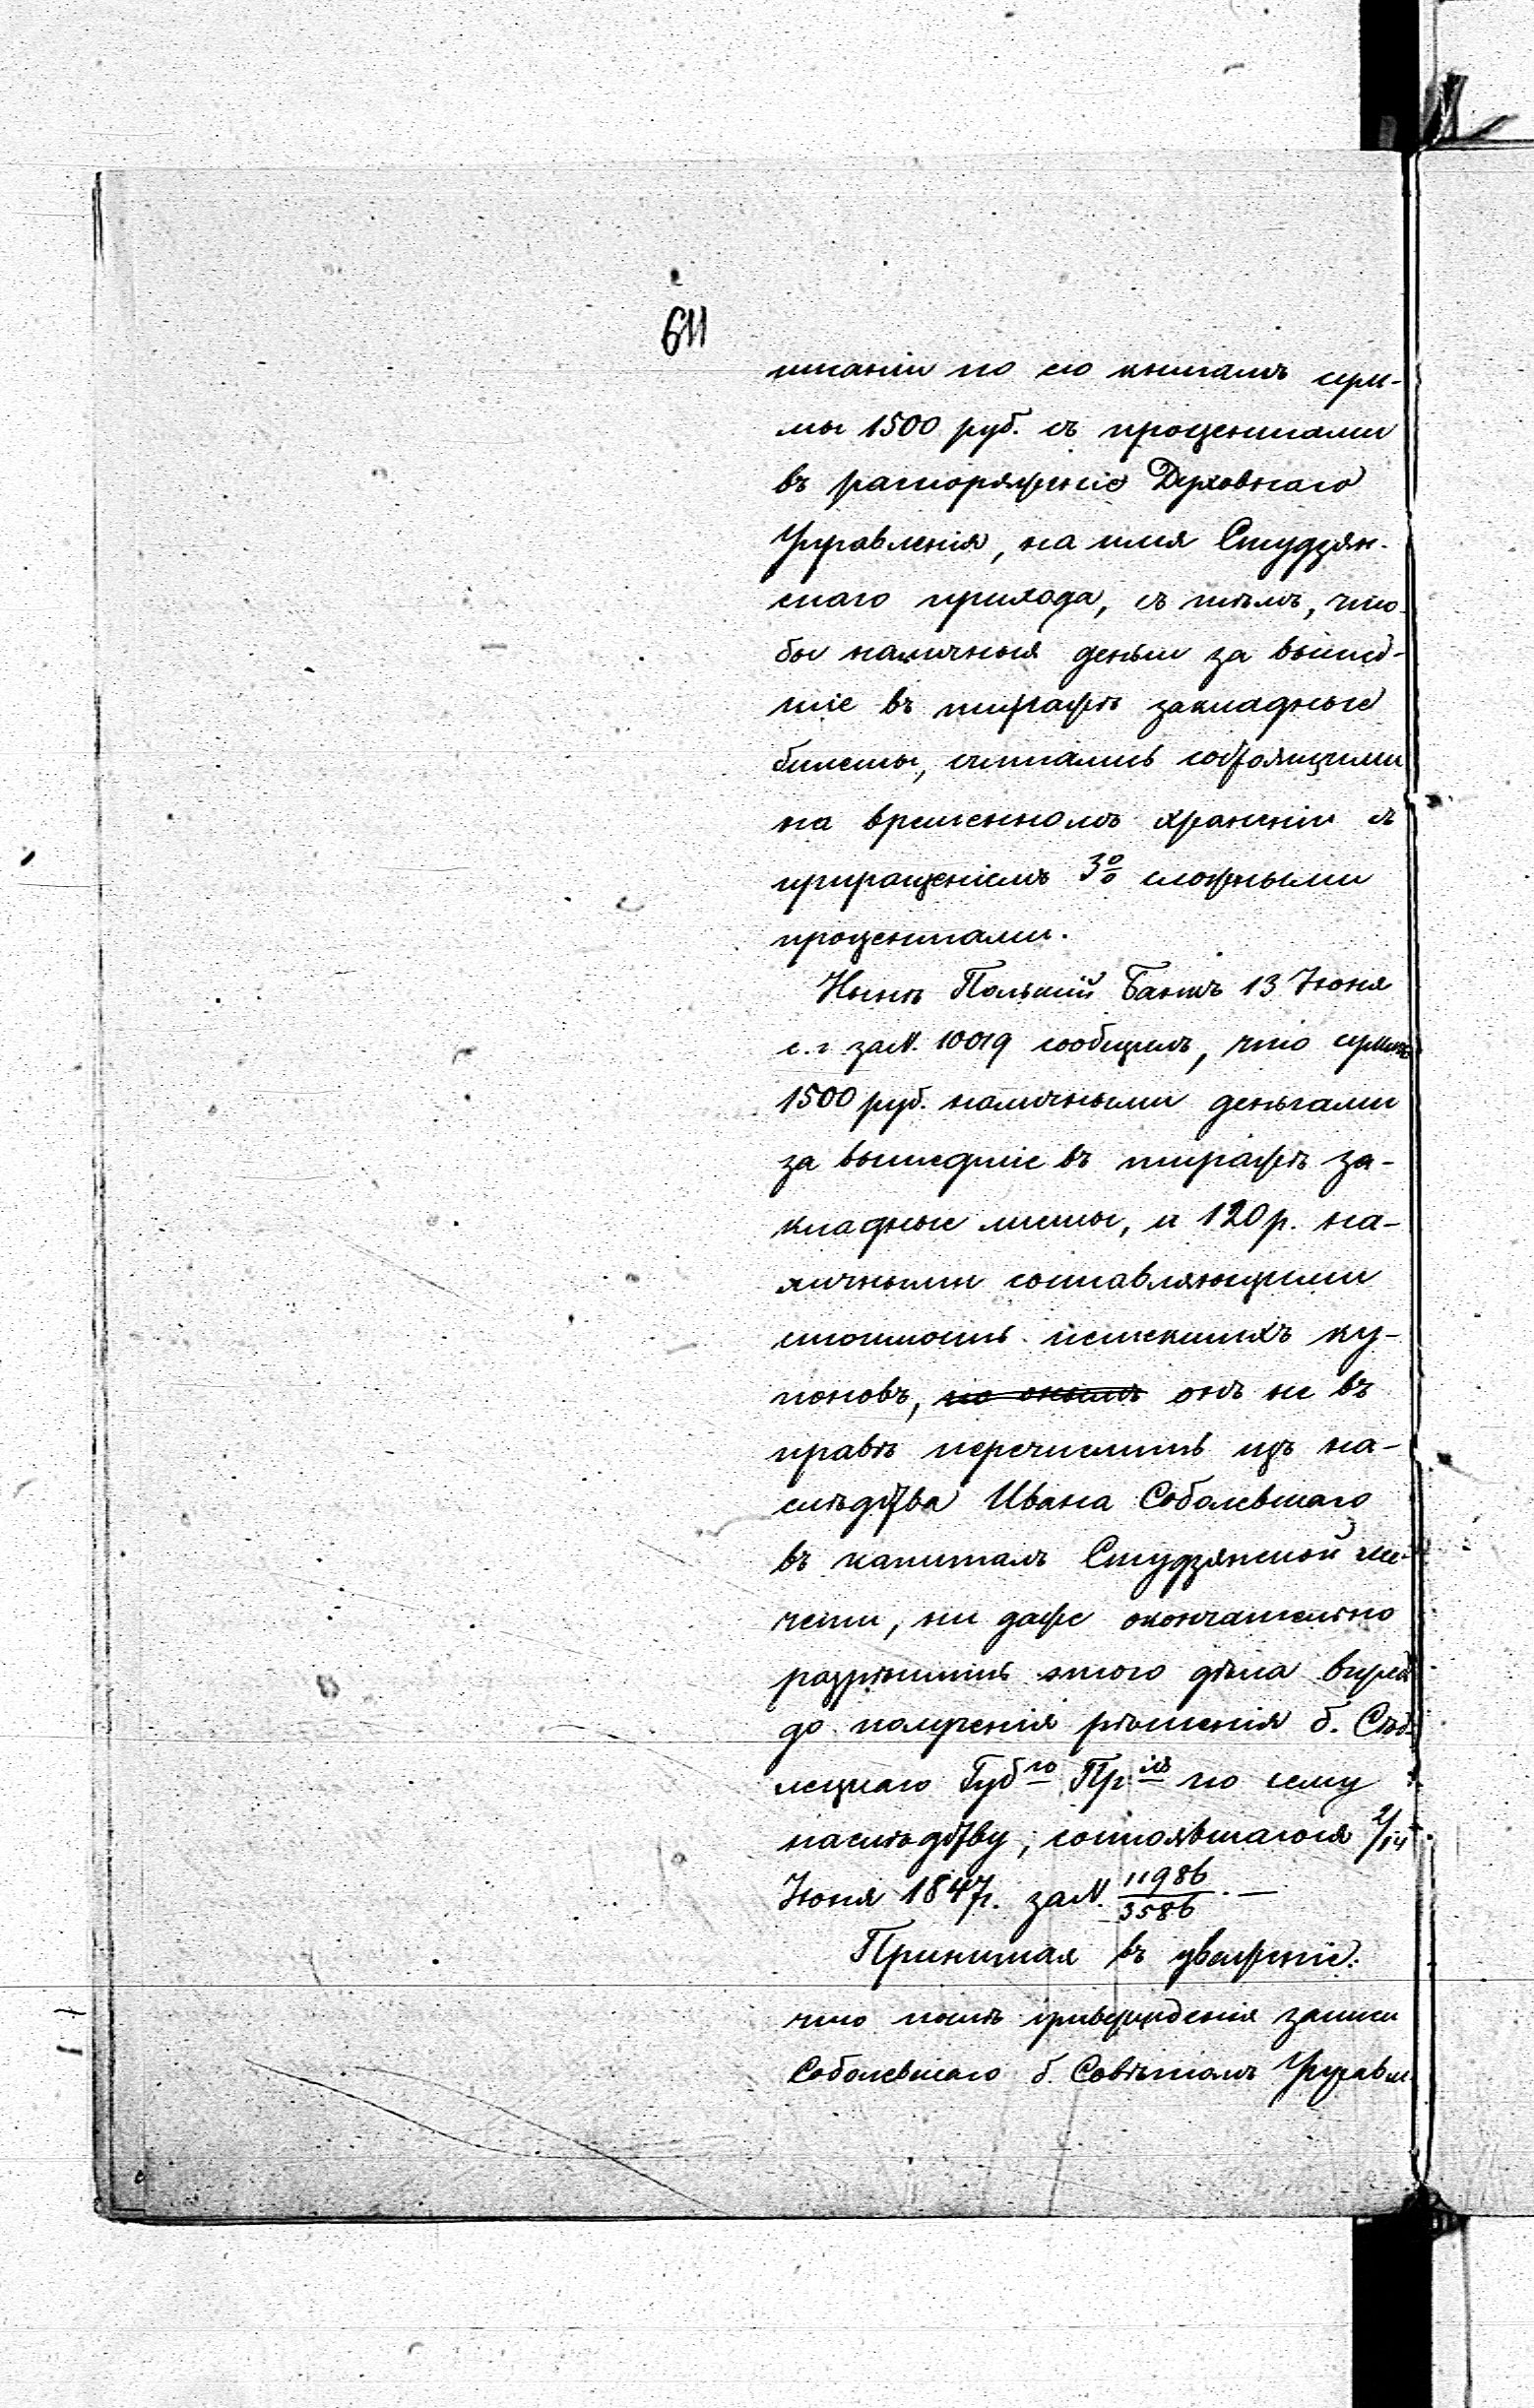 611
писаніи по его книгамъ сум-
мы 1500 руб. съ процентами
въ распоряженіе Духовнаго
Управленія, на имя Студзян-
скаго прихода, съ тѣмъ, что-
бы наличныя деньги за вышед-
шіе въ тиражъ закладные
билеты, считались состоящими
на временномъ храненіи съ
приращеніемъ 3% сложными
процентами.
Нынѣ Польскій Банкъ 13 Іюня
с. г. за N. 10019 сообщилъ, что сумму
1500 руб. наличными деньгами
за вышедшіе въ тиражъ за-
кладные листы, и 120 р. на-
личными составляющими
стоимость истекшихъ ку-
поновъ, по онымъ онъ не въ
правѣ перечислить изъ на-
слѣдства Ивана Соболевскаго
въ капиталъ Студзянской ме-
чети, ни даже окончательно
разрѣшить этого дѣла впредь
до полученія рѣшенія б. Сѣд-
лецкаго Губго Прія по сему
наслѣдству, состоявшагося 2/14
Іюня 1847 г. за N. 11986/3586. —
Принимая въ уваженіе:
что послѣ утвержденія записи
Соболевскаго б. Совѣтомъ Управл.